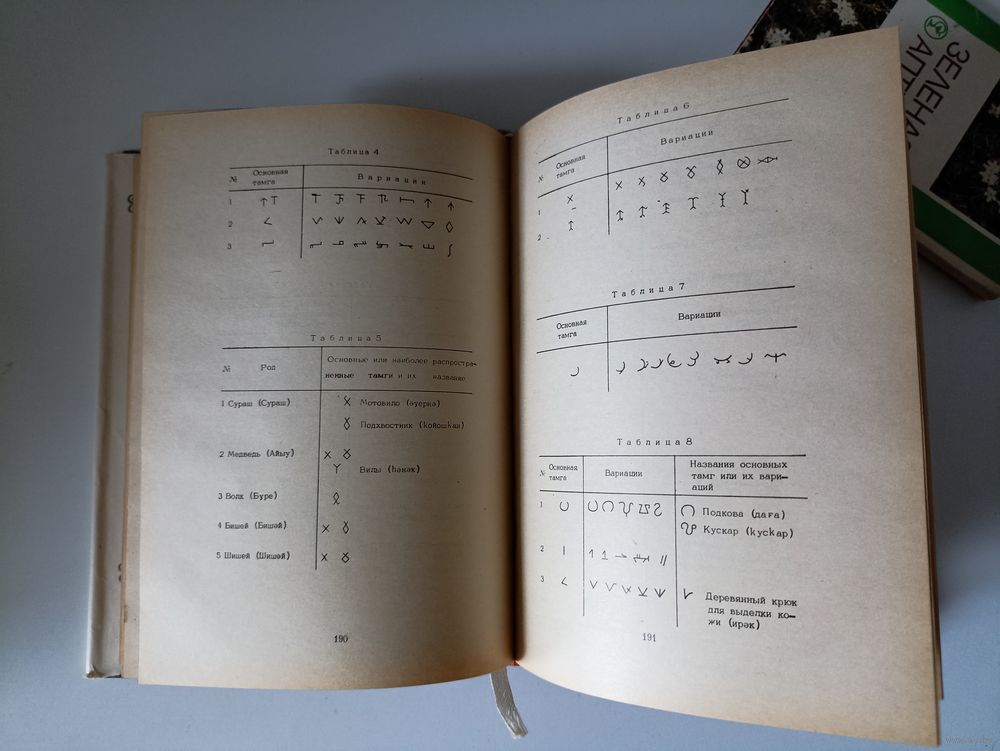 Таблица 4
№ Основная тамга Вариации
1
2
3
Таблица 5
№ Род Основные или наиболее распростра-
ненные тамги и их название
1 Сураш (Сураш) Мотовило (әуернә)
Подхвостник (ҡойошҡан)
2 Медведь (Айыу)
Вилы (һәнәк)
3 Волк (Буре)
4 Бишей (Бишәй)
5 Шишей (Шишәй)
190
Таблица 6
№ Основная тамга Вариации
1
2
Таблица 7
Основная тамга Вариации
Таблица 8
№ Основная тамга Вариации Названия основных
тамг или их вари-
аций
1 Подкова (даға)
Кускар (ҡусҡар)
2
3 Деревянный крюк
для выделки ко-
жи (ирәк)
191
ЗЕЛЕНА